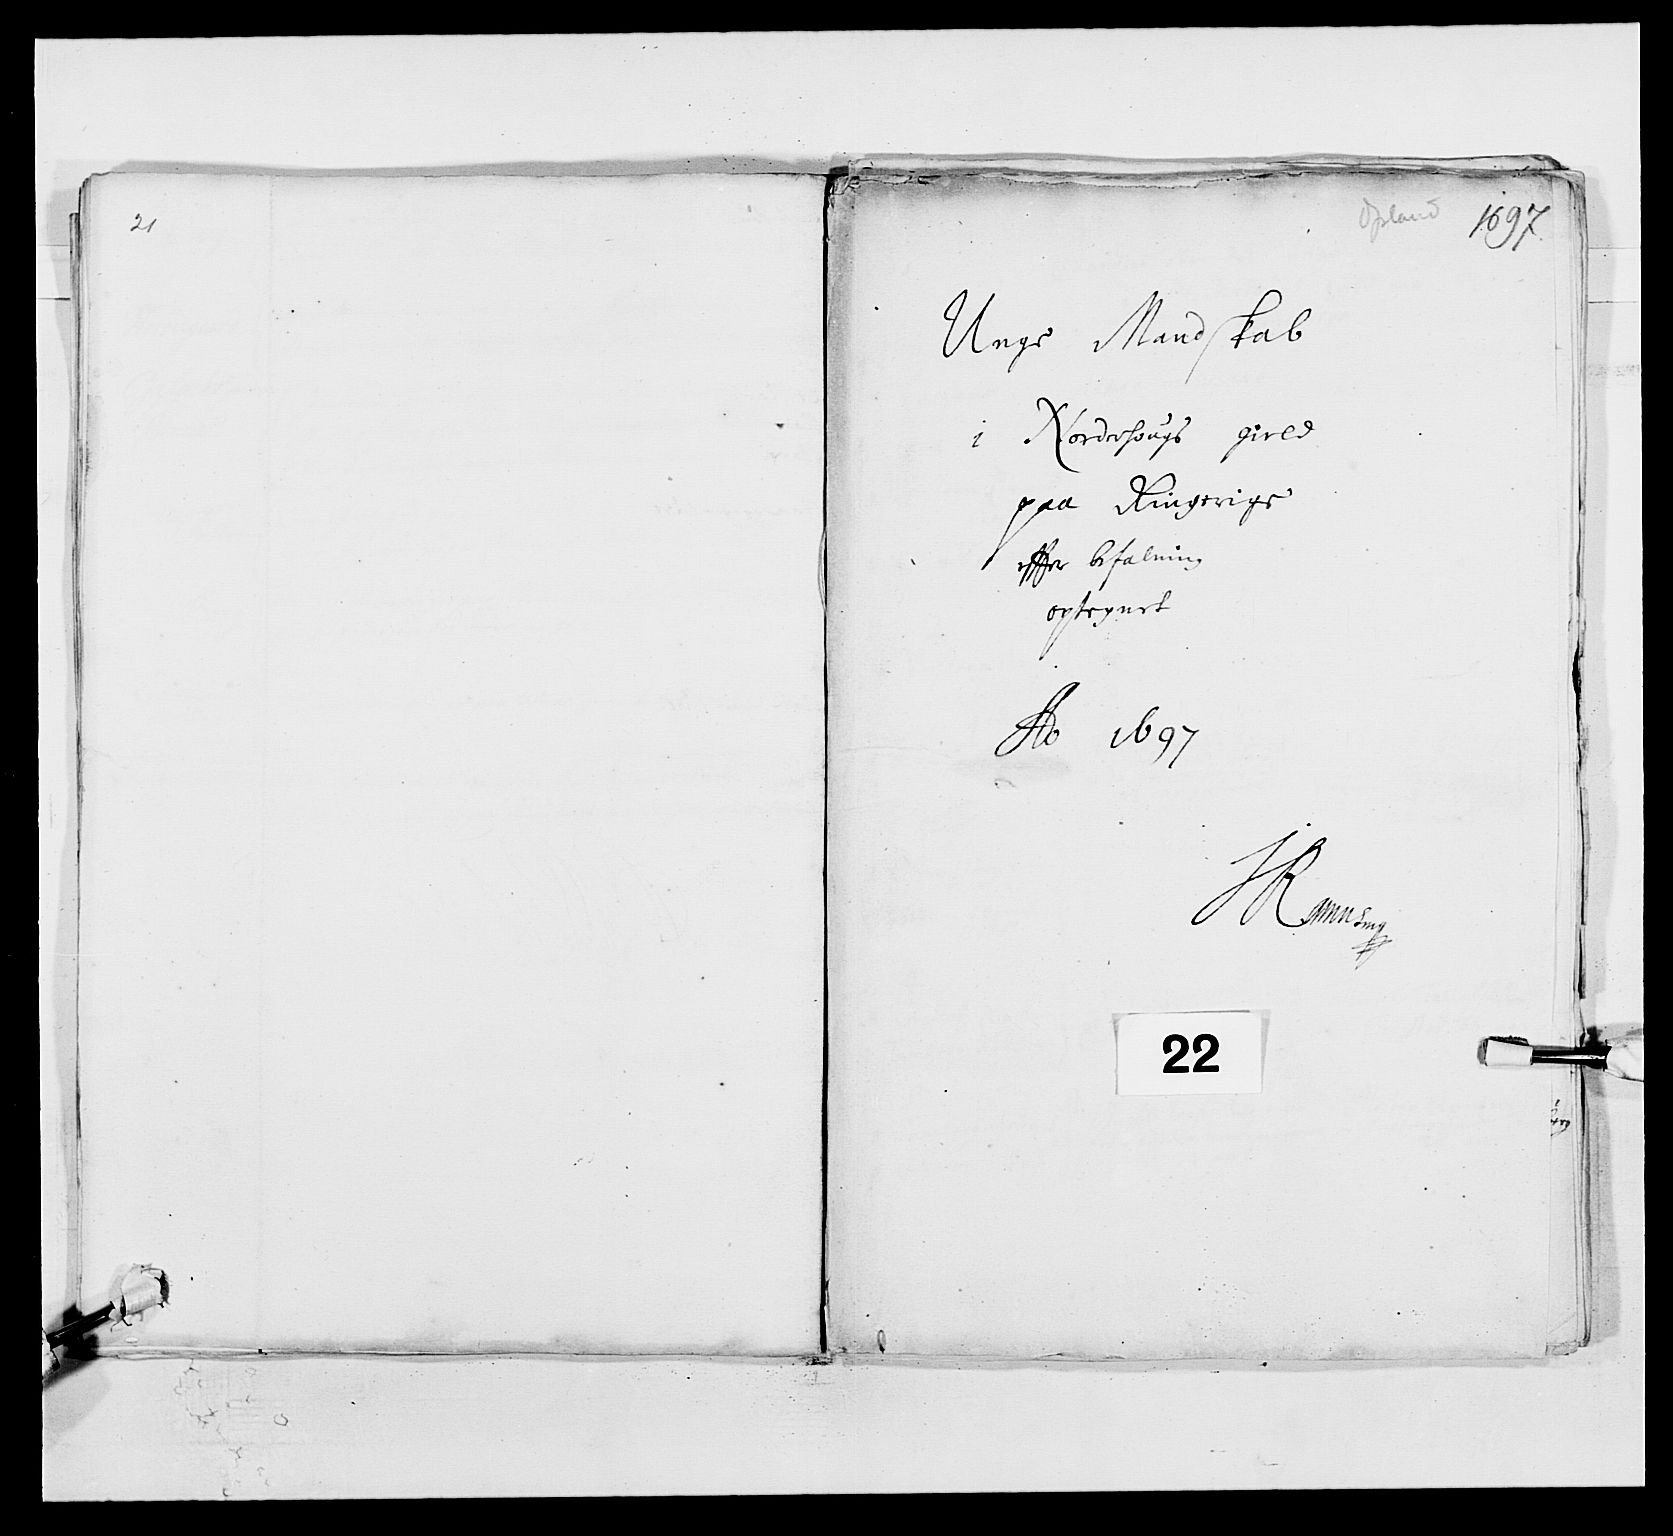 21
Opland 1697
Unge Mandskab
i Norderhougs gield
paa Ringerige
effter befalning
optegnet
Ao 1697
22